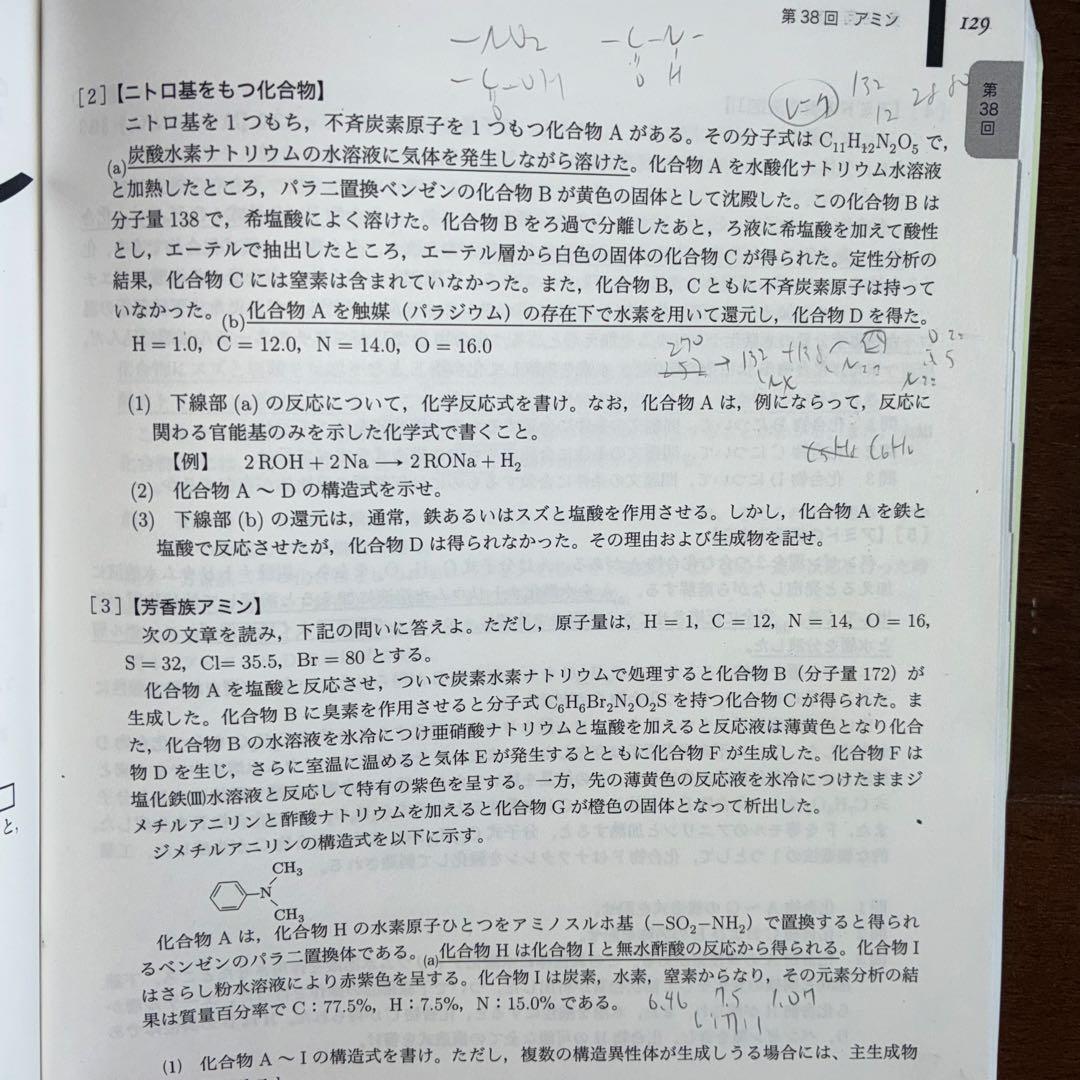 第38回 アミン 129
第38回
−NO₂ −C−N−
O H
−C−OH
O
132
12
[2]【ニトロ基をもつ化合物】
ニトロ基を1つもち，不斉炭素原子を1つもつ化合物Aがある。その分子式はC₁₁H₁₂N₂O₅で，
(a)炭酸水素ナトリウムの水溶液に気体を発生しながら溶けた。化合物Aを水酸化ナトリウム水溶液
と加熱したところ，パラ二置換ベンゼンの化合物Bが黄色の固体として沈殿した。この化合物Bは
分子量138で，希塩酸によく溶けた。化合物Bをろ過で分離したあと，ろ液に希塩酸を加えて酸性
とし，エーテルで抽出したところ，エーテル層から白色の固体の化合物Cが得られた。定性分析の
結果，化合物Cには窒素は含まれていなかった。また，化合物B，Cともに不斉炭素原子は持って
いなかった。(b)化合物Aを触媒（パラジウム）の存在下で水素を用いて還元し，化合物Dを得た。
H＝1.0，C＝12.0，N＝14.0，O＝16.0
270
252 → 132 + 138
(1) 下線部(a)の反応について，化学反応式を書け。なお，化合物Aは，例にならって，反応に
関わる官能基のみを示した化学式で書くこと。
【例】 2ROH＋2Na ⟶ 2RONa＋H₂
(2) 化合物A～Dの構造式を示せ。
(3) 下線部(b)の還元は，通常，鉄あるいはスズと塩酸を作用させる。しかし，化合物Aを鉄と
塩酸で反応させたが，化合物Dは得られなかった。その理由および生成物を記せ。
[3]【芳香族アミン】
次の文章を読み，下記の問いに答えよ。ただし，原子量は，H＝1，C＝12，N＝14，O＝16，
S＝32，Cl＝35.5，Br＝80とする。
化合物Aを塩酸と反応させ，ついで炭素水素ナトリウムで処理すると化合物B（分子量172）が
生成した。化合物Bに臭素を作用させると分子式C₆H₆Br₂N₂O₂Sを持つ化合物Cが得られた。ま
た，化合物Bの水溶液を氷冷につけ亜硝酸ナトリウムと塩酸を加えると反応液は薄黄色となり化合
物Dを生じ，さらに室温に温めると気体Eが発生するとともに化合物Fが生成した。化合物Fは
塩化鉄(Ⅲ)水溶液と反応して特有の紫色を呈する。一方，先の薄黄色の反応液を氷冷につけたままジ
メチルアニリンと酢酸ナトリウムを加えると化合物Gが橙色の固体となって析出した。
ジメチルアニリンの構造式を以下に示す。
CH₃
N
CH₃
化合物Aは，化合物Hの水素原子ひとつをアミノスルホ基（−SO₂−NH₂）で置換すると得られ
るベンゼンのパラ二置換体である。(a)化合物Hは化合物Iと無水酢酸の反応から得られる。化合物I
はさらし粉水溶液により赤紫色を呈する。化合物Iは炭素，水素，窒素からなり，その元素分析の結
果は質量百分率でC：77.5%，H：7.5%，N：15.0%である。
6.46 7.5 1.07
(1) 化合物A～Iの構造式を書け。ただし，複数の構造異性体が生成しうる場合には、主生成物